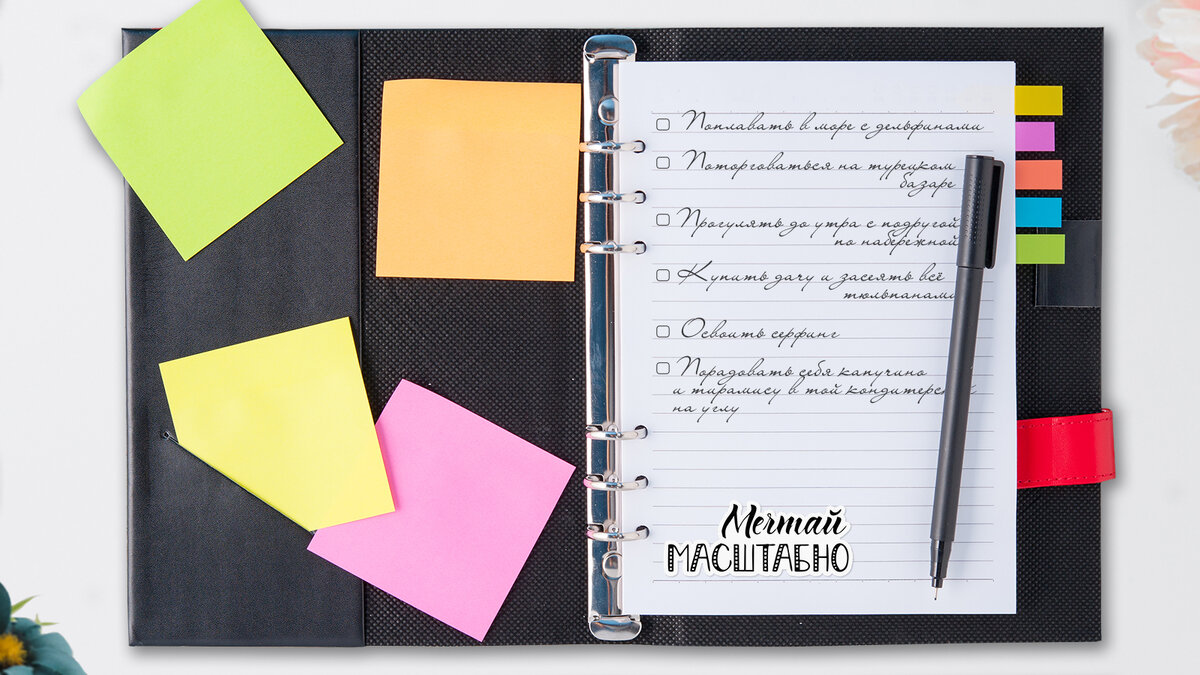 Поплавать в море с дельфинами
Поторговаться на турецком
базаре
Прогулять до утра с подругой
по набережной
Купить дачу и засеять всё
тюльпанами
Освоить серфинг
Порадовать себя капучино
и тирамису в той кондитерской
на углу
Мечтай
МАСШТАБНО